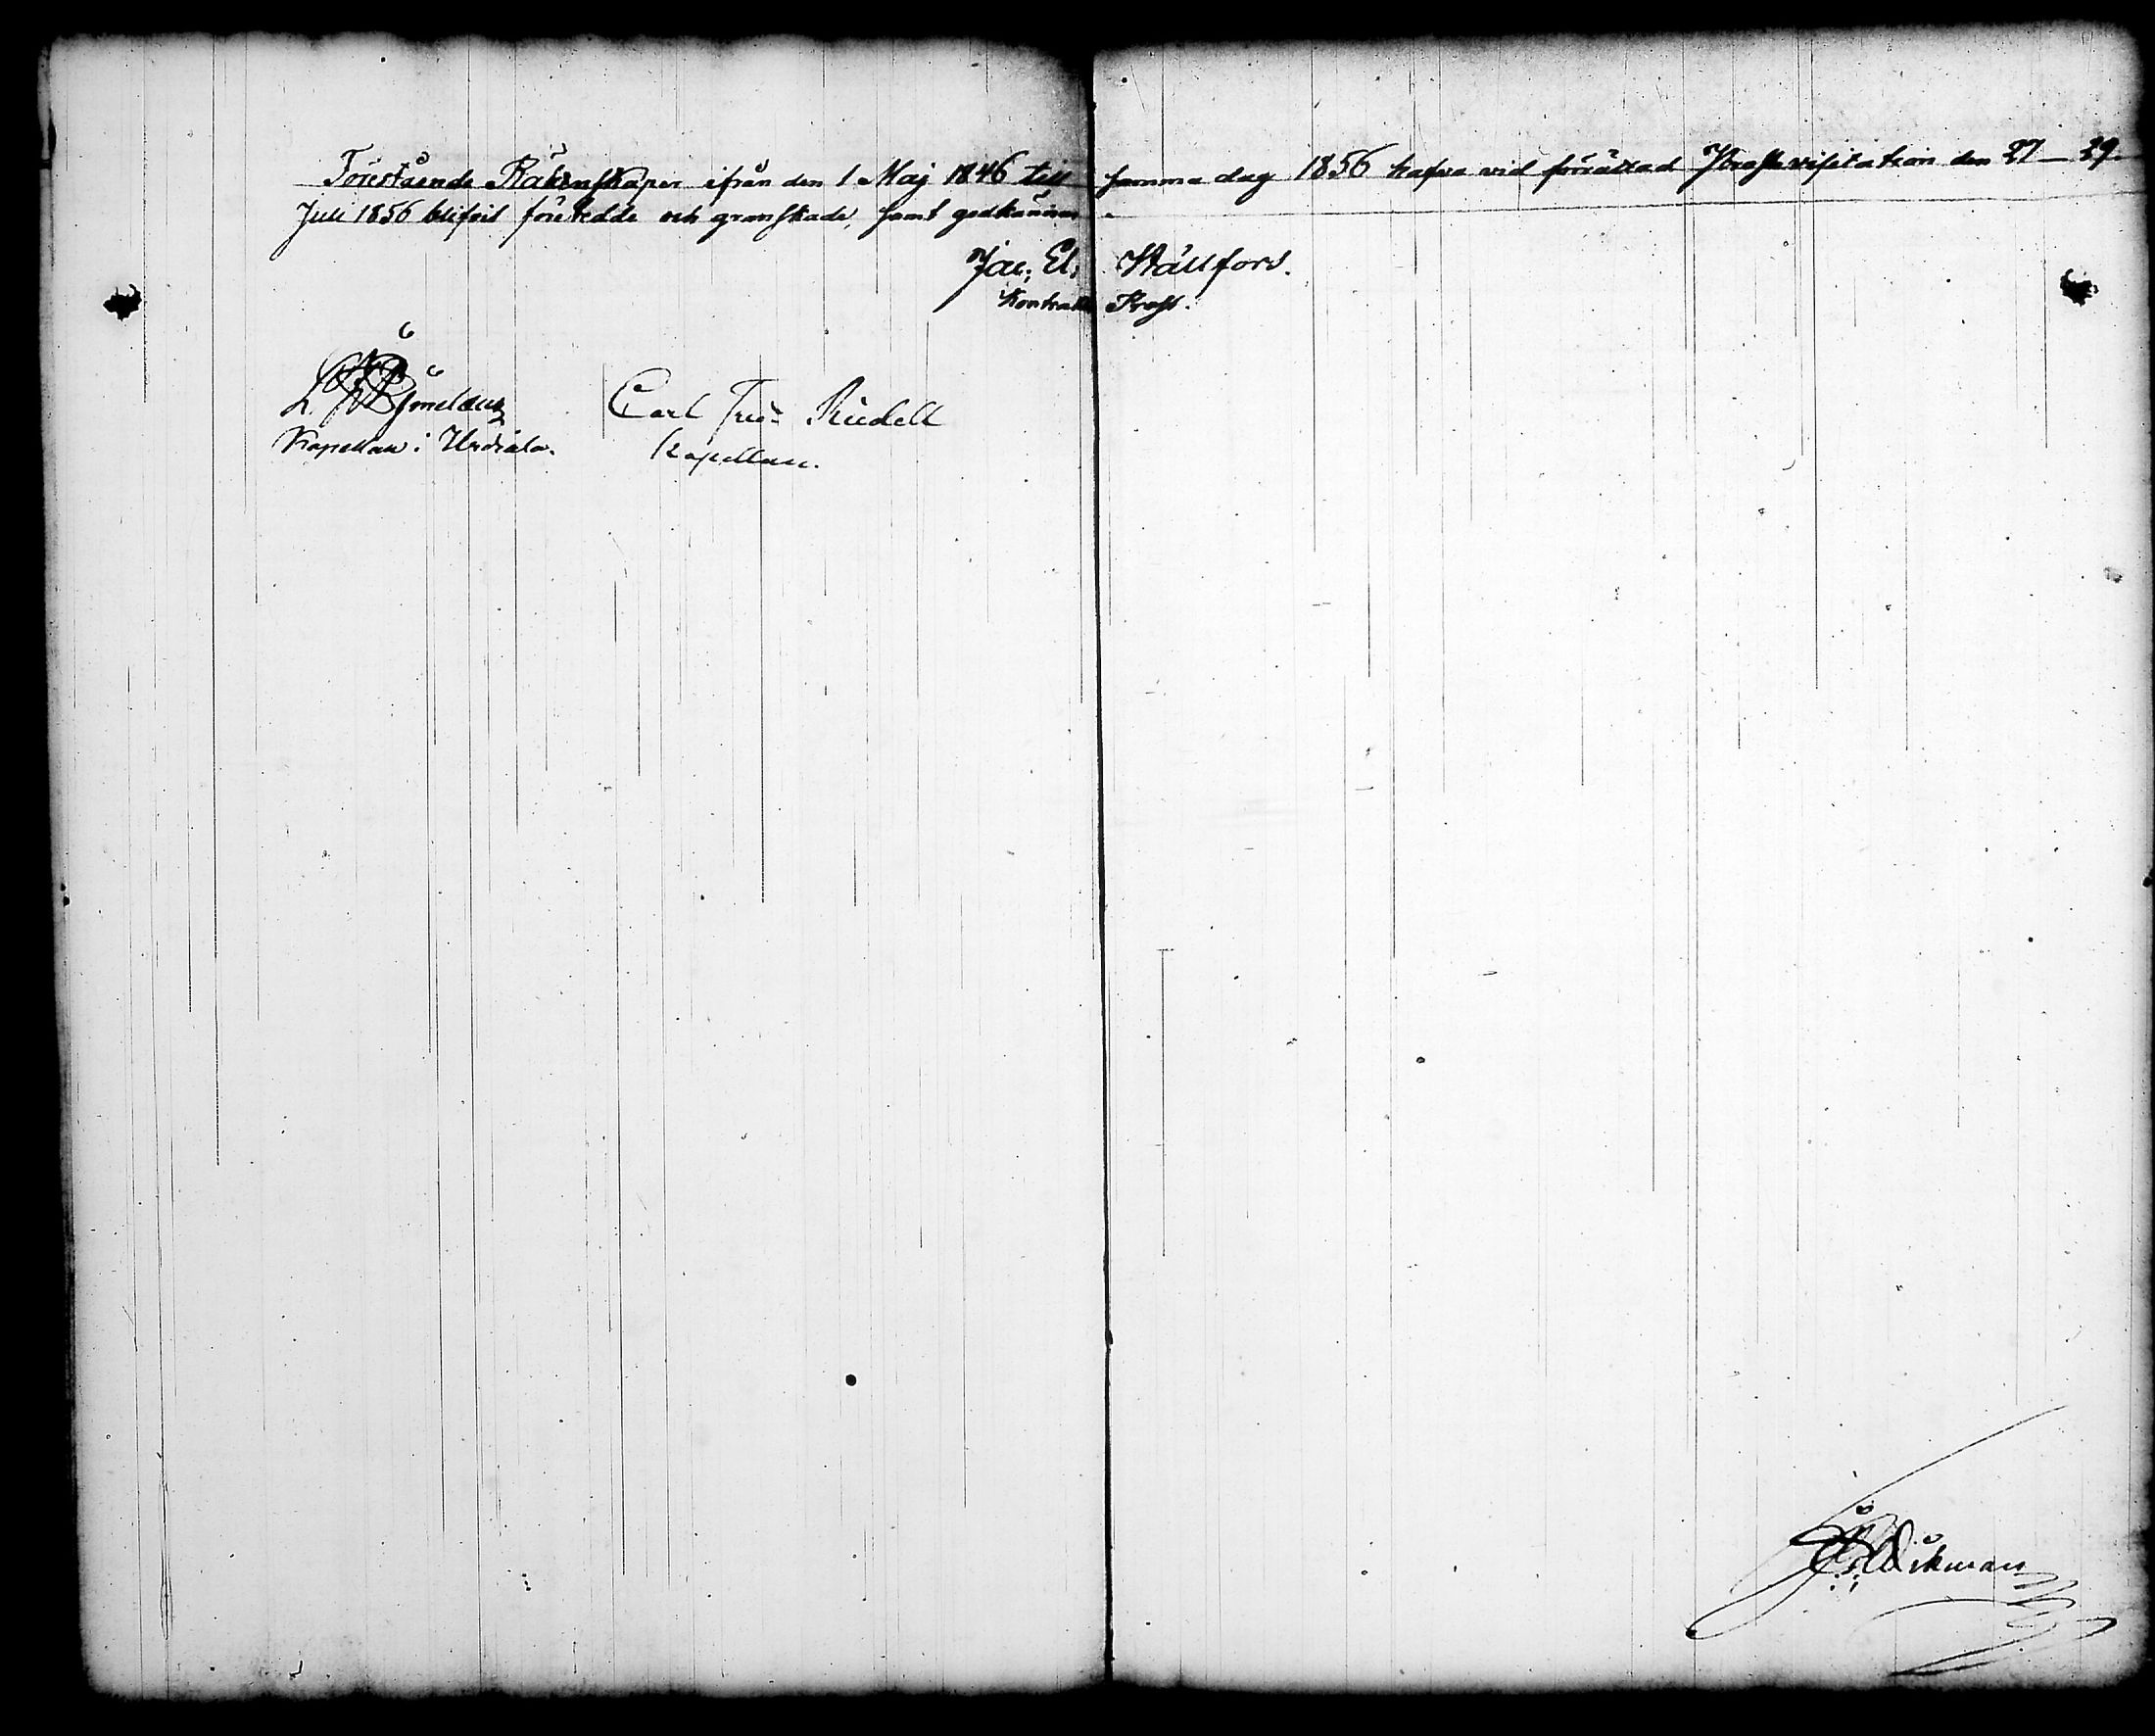 Förestående Räkenskaper ifrån den 1 Maj 1846 till samma dag 1856 hafva vid förrättad Proste visitation den 27–29.
Juli 1856 blifvit företedde och granskade, samt godkännas.
Jac. El. Wällfors.
Kontrakts Prost.
L. Björnelaus
Kapellan i Urdiala.
Carl Fredr Riedell
Kapellan.
Wikman